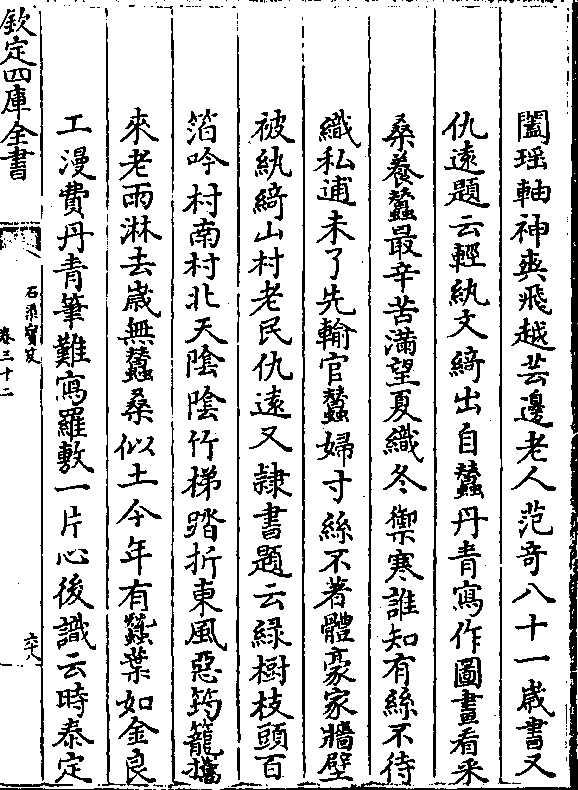 闔瑶軸神爽飛越芸邊老人范奇八十一歳書又
仇逺題云輕紈文綺出自蠶丹青寫作圖畫看采
桑養蠶最辛苦滿望夏織冬禦寒誰知有絲不待
織私逋未了先輸官蠶婦寸絲不著體豪家牆壁
被紈綺山村老民仇逺又隷書題云緑樹枝頭百
箔吟村南村北天隂隂竹梯踏折東風惡筠籠攜
來老雨淋去歳無蠶桑似土今年有蠶葉如金良
工漫費丹青筆難寫羅敷一片心後識云時泰定
欽定四庫全書
石渠寳笈
卷三十二
六